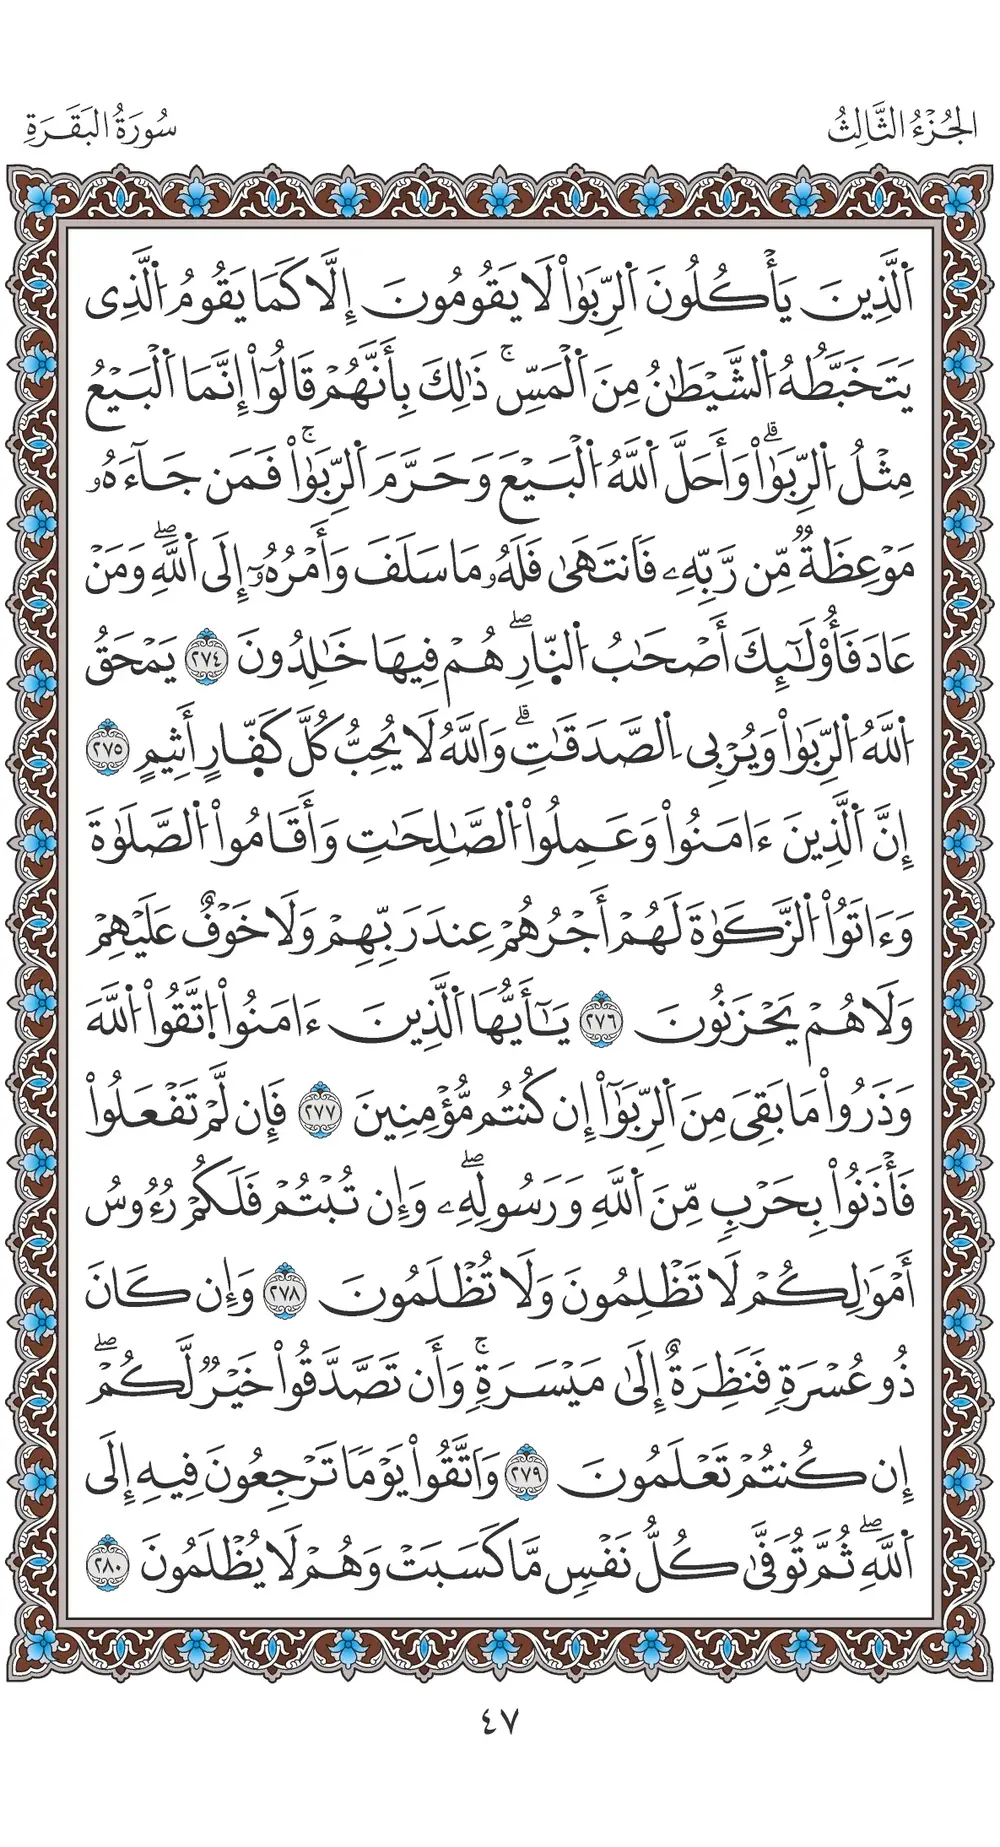 الجُزْءُ الثَّالِثُ
سُورَةُ البَقَرَةِ
اَ۬لذِينَ يَأْكُلُونَ اَ۬لرِّبَوٰاْ لَا يَقُومُونَ إِلَّا كَمَا يَقُومُ اُ۬لذِى
يَتَخَبَّطُهُ اُ۬لشَّيْطَٰنُ مِنَ اَ۬لْمَسِّۚ ذَٰلِكَ بِأَنَّهُمْ قَالُوٓاْ إِنَّمَا اَ۬لْبَيْعُ
مِثْلُ اُ۬لرِّبَوٰاْۗ وَأَحَلَّ اَ۬للَّهُ اُ۬لْبَيْعَ وَحَرَّمَ اَ۬لرِّبَوٰاْۚ فَمَن جَآءَهُۥ
مَوْعِظَةٌ مِّن رَّبِّهِۦ فَانتَهَىٰ فَلَهُۥ مَا سَلَفَ وَأَمْرُهُۥٓ إِلَى اَ۬للَّهِۖ وَمَنْ
عَادَ فَأُوْلَٰٓئِكَ أَصْحَٰبُ اُ۬لنّ۪ارِۖ هُمْ فِيهَا خَٰلِدُونَ ٢٧٤ يَمْحَقُ
اُ۬للَّهُ اُ۬لرِّبَوٰاْ وَيُرْبِى اِ۬لصَّدَقَٰتِۗ وَاللَّهُ لَا يُحِبُّ كُلَّ كَفّ۪ارٍ أَثِيمٍ ٢٧٥
إِنَّ اَ۬لذِينَ ءَامَنُواْ وَعَمِلُواْ اُ۬لصَّٰلِحَٰتِ وَأَقَامُواْ اُ۬لصَّلَوٰةَ
وَءَاتَوُاْ اُ۬لزَّكَوٰةَ لَهُمْ أَجْرُهُمْ عِندَ رَبِّهِمْ وَلَا خَوْفٌ عَلَيْهِمْ
وَلَا هُمْ يَحْزَنُونَ ٢٧٦ يَٰٓأَيُّهَا اَ۬لذِينَ ءَامَنُواْ اُ۪تَّقُواْ اُ۬للَّهَ
وَذَرُواْ مَا بَقِىَ مِنَ اَ۬لرِّبَوٰٓاْ إِن كُنتُم مُّؤْمِنِينَ ٢٧٧ فَإِن لَّمْ تَفْعَلُواْ
فَأْذَنُواْ بِحَرْبٍ مِّنَ اَ۬للَّهِ وَرَسُولِهِۦۖ وَإِن تُبْتُمْ فَلَكُمْ رُءُوسُ
أَمْوَٰلِكُمْ لَا تَظْلِمُونَ وَلَا تُظْلَمُونَ ٢٧٨ وَإِن كَانَ
ذُو عُسْرَةٍ فَنَظِرَةٌ إِلَىٰ مَيْسَرَةٍۚ وَأَن تَصَّدَّقُواْ خَيْرٌ لَّكُمْۖ
إِن كُنتُمْ تَعْلَمُونَ ٢٧٩ وَاتَّقُواْ يَوْمًا تَرْجِعُونَ فِيهِ إِلَى
اَ۬للَّهِۖ ثُمَّ تُوَفَّىٰ كُلُّ نَفْسٍ مَّا كَسَبَتْ وَهُمْ لَا يُظْلَمُونَ ٢٨٠
٤٧